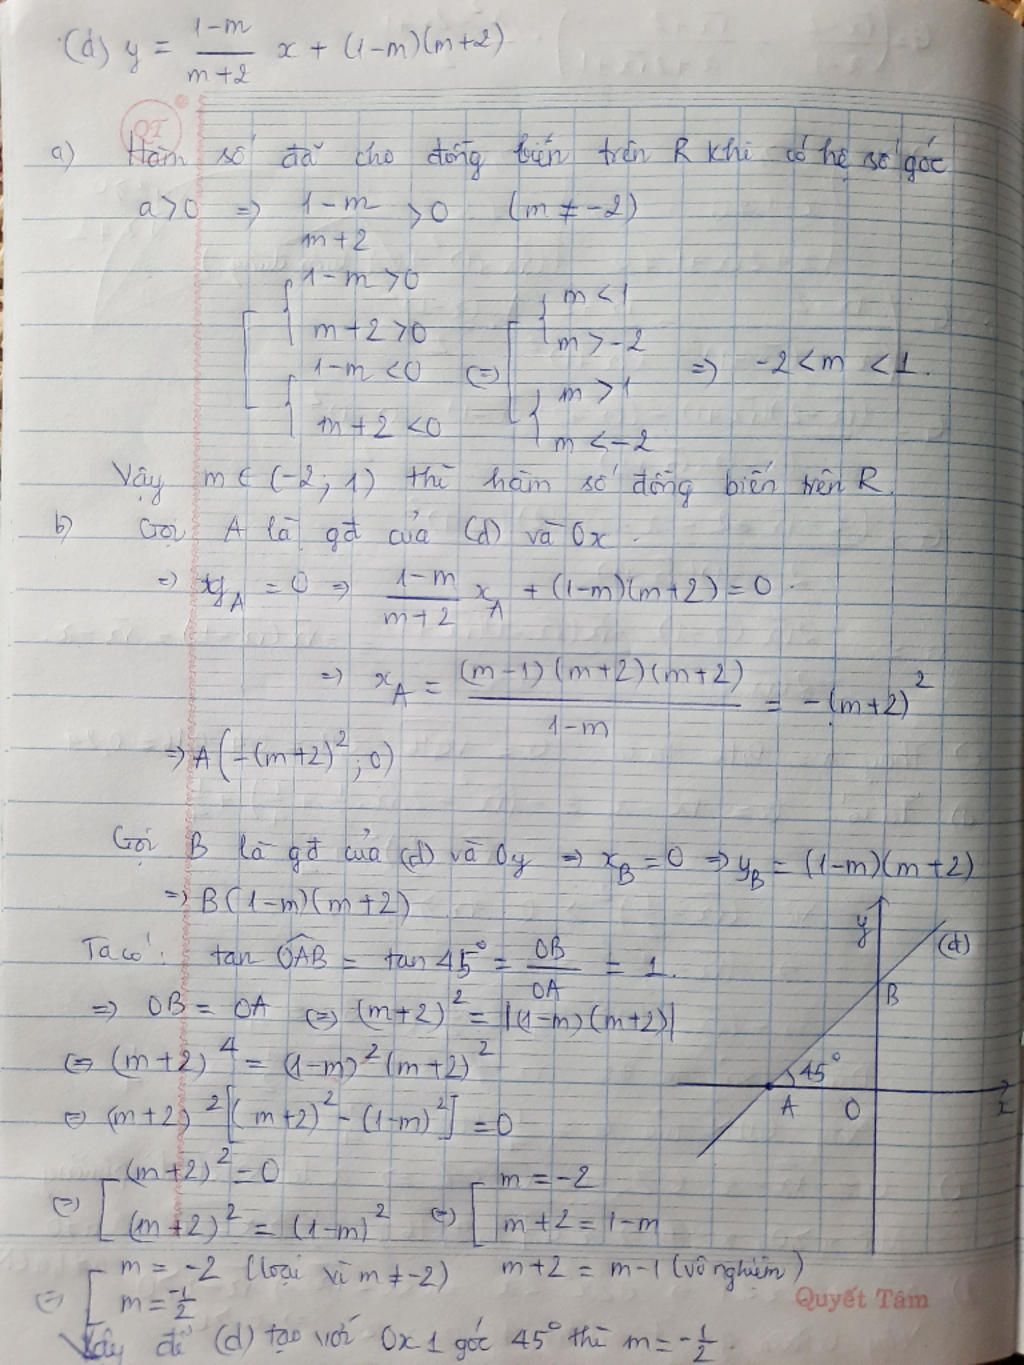 (d) y = \frac{1-m}{m+2} x + (1-m)(m+2)
QT
a) Hàm số đã cho đồng biến trên R khi có hệ số góc
a>0 => \frac{1-m}{m+2} >0 (m ≠ -2)
[ { 1-m>0
m+2>0
{ 1-m<0
m+2<0
(=) [ { m<1
m>-2
{ m>1
m<-2
=) -2<m<1.
Vậy m ∈ (-2; 1) thì hàm số đồng biến trên R.
b) Gọi A là gđ của (d) và Ox.
=> y_A = 0 => \frac{1-m}{m+2} x_A + (1-m)(m+2) = 0.
=> x_A = \frac{(m-1)(m+2)(m+2)}{1-m} = -(m+2)^2
=> A(-(m+2)^2; 0)
Gọi B là gđ của (d) và Oy => x_B = 0 => y_B = (1-m)(m+2)
=> B(1-m)(m+2)
Ta có: tan OAB = tan 45° = \frac{OB}{OA} = 1.
=> OB = OA (=) (m+2)^2 = |(1-m)(m+2)|
(=) (m+2)^4 = (1-m)^2 (m+2)^2
(=) (m+2)^2 [(m+2)^2 - (1-m)^2] = 0
(=) [ (m+2)^2 = 0
(m+2)^2 = (1-m)^2
(=) [ m = -2
m+2 = 1-m
m+2 = m-1 (vô nghiệm)
(=) [ m = -2 (loại vì m ≠ -2)
m = -\frac{1}{2}
Vậy để (d) tạo với Ox 1 góc 45° thì m = -\frac{1}{2}.
y
(d)
B
45°
A
O
x
Quyết Tâm